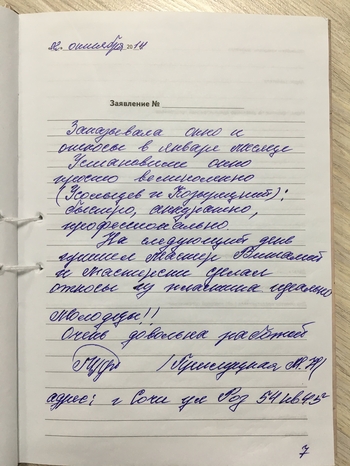 22 октября 2014
Заявление №
Заказывала окно и
откосы в январе месяце
Установили окно
просто великолепно
( и Козырицкий):
быстро, аккуратно,
профессионально
На следующий день
пришел мастер Виталий
и мастерски сделал
откосы из пластика идеально
Молодцы!!
Очень довольна работой
/Прилуцкая М. /
адрес: г Сочи ул Роз 54 кв
7